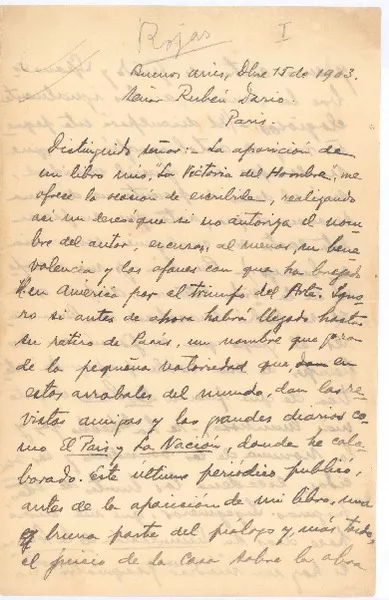 Rojas I
Buenos Aires, Dbre 15 de 1903.
Señor Rubén Dario.
Paris.
Distinguido señor:- La aparición de
un libro mio, "La Victoria del Hombre", me
ofrece la ocasión de escribirle, realizando
asi un deseo que si no autoriza el nom-
bre del autor, excusa, al menos, su bene-
volencia y los afanes con que ha bregado
Vd. en América por el triunfo del Arte. Igno-
ro si antes de ahora habrá llegado hasta
su retiro de Paris, un nombre que goza
de la pequeña notoriedad que dan en
estos arrabales del mundo, las re-
vistas amigas y los grandes diarios co-
mo El Pais y La Nación, donde he cola-
borado. Este último periodico publicó,
antes de la aparición de mi libro, una
buena parte del prólogo y más tarde,
el juicio de la casa sobre la obra